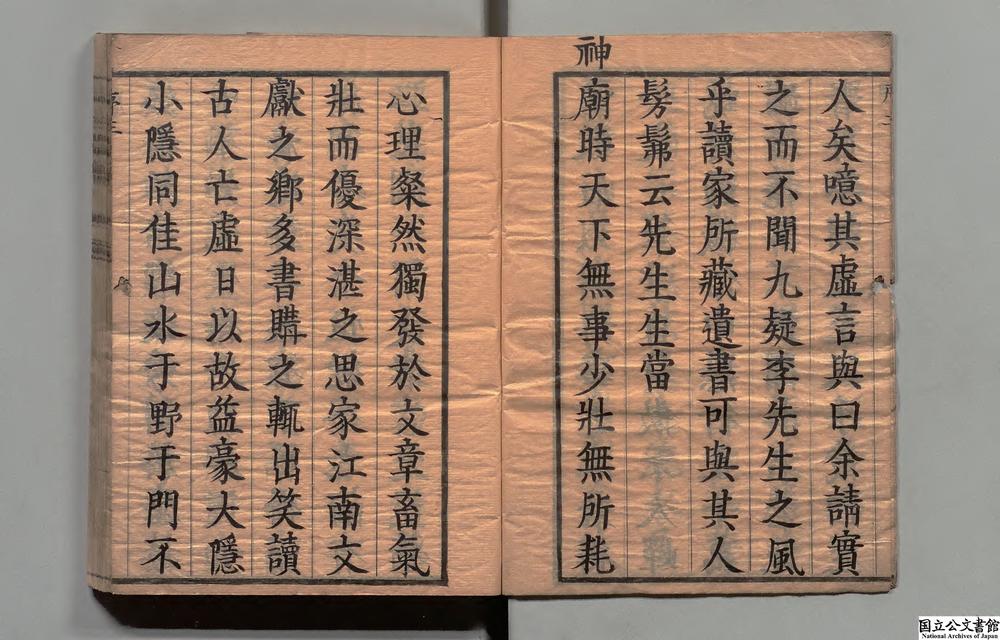 人矣噫其虛言與曰余請實
之而不聞九疑李先生之風
乎讀家所藏遺書可與其人
髣髴云先生生當
神廟時天下無事少壯無所耗
心理粲然獨發於文章畜氣
壯而優深湛之思家江南文
獻之鄉多書購之輒出笑讀
古人亡虛日以故益豪大隱
小隱同佳山水于野于門不
国立公文書館
National Archives of Japan